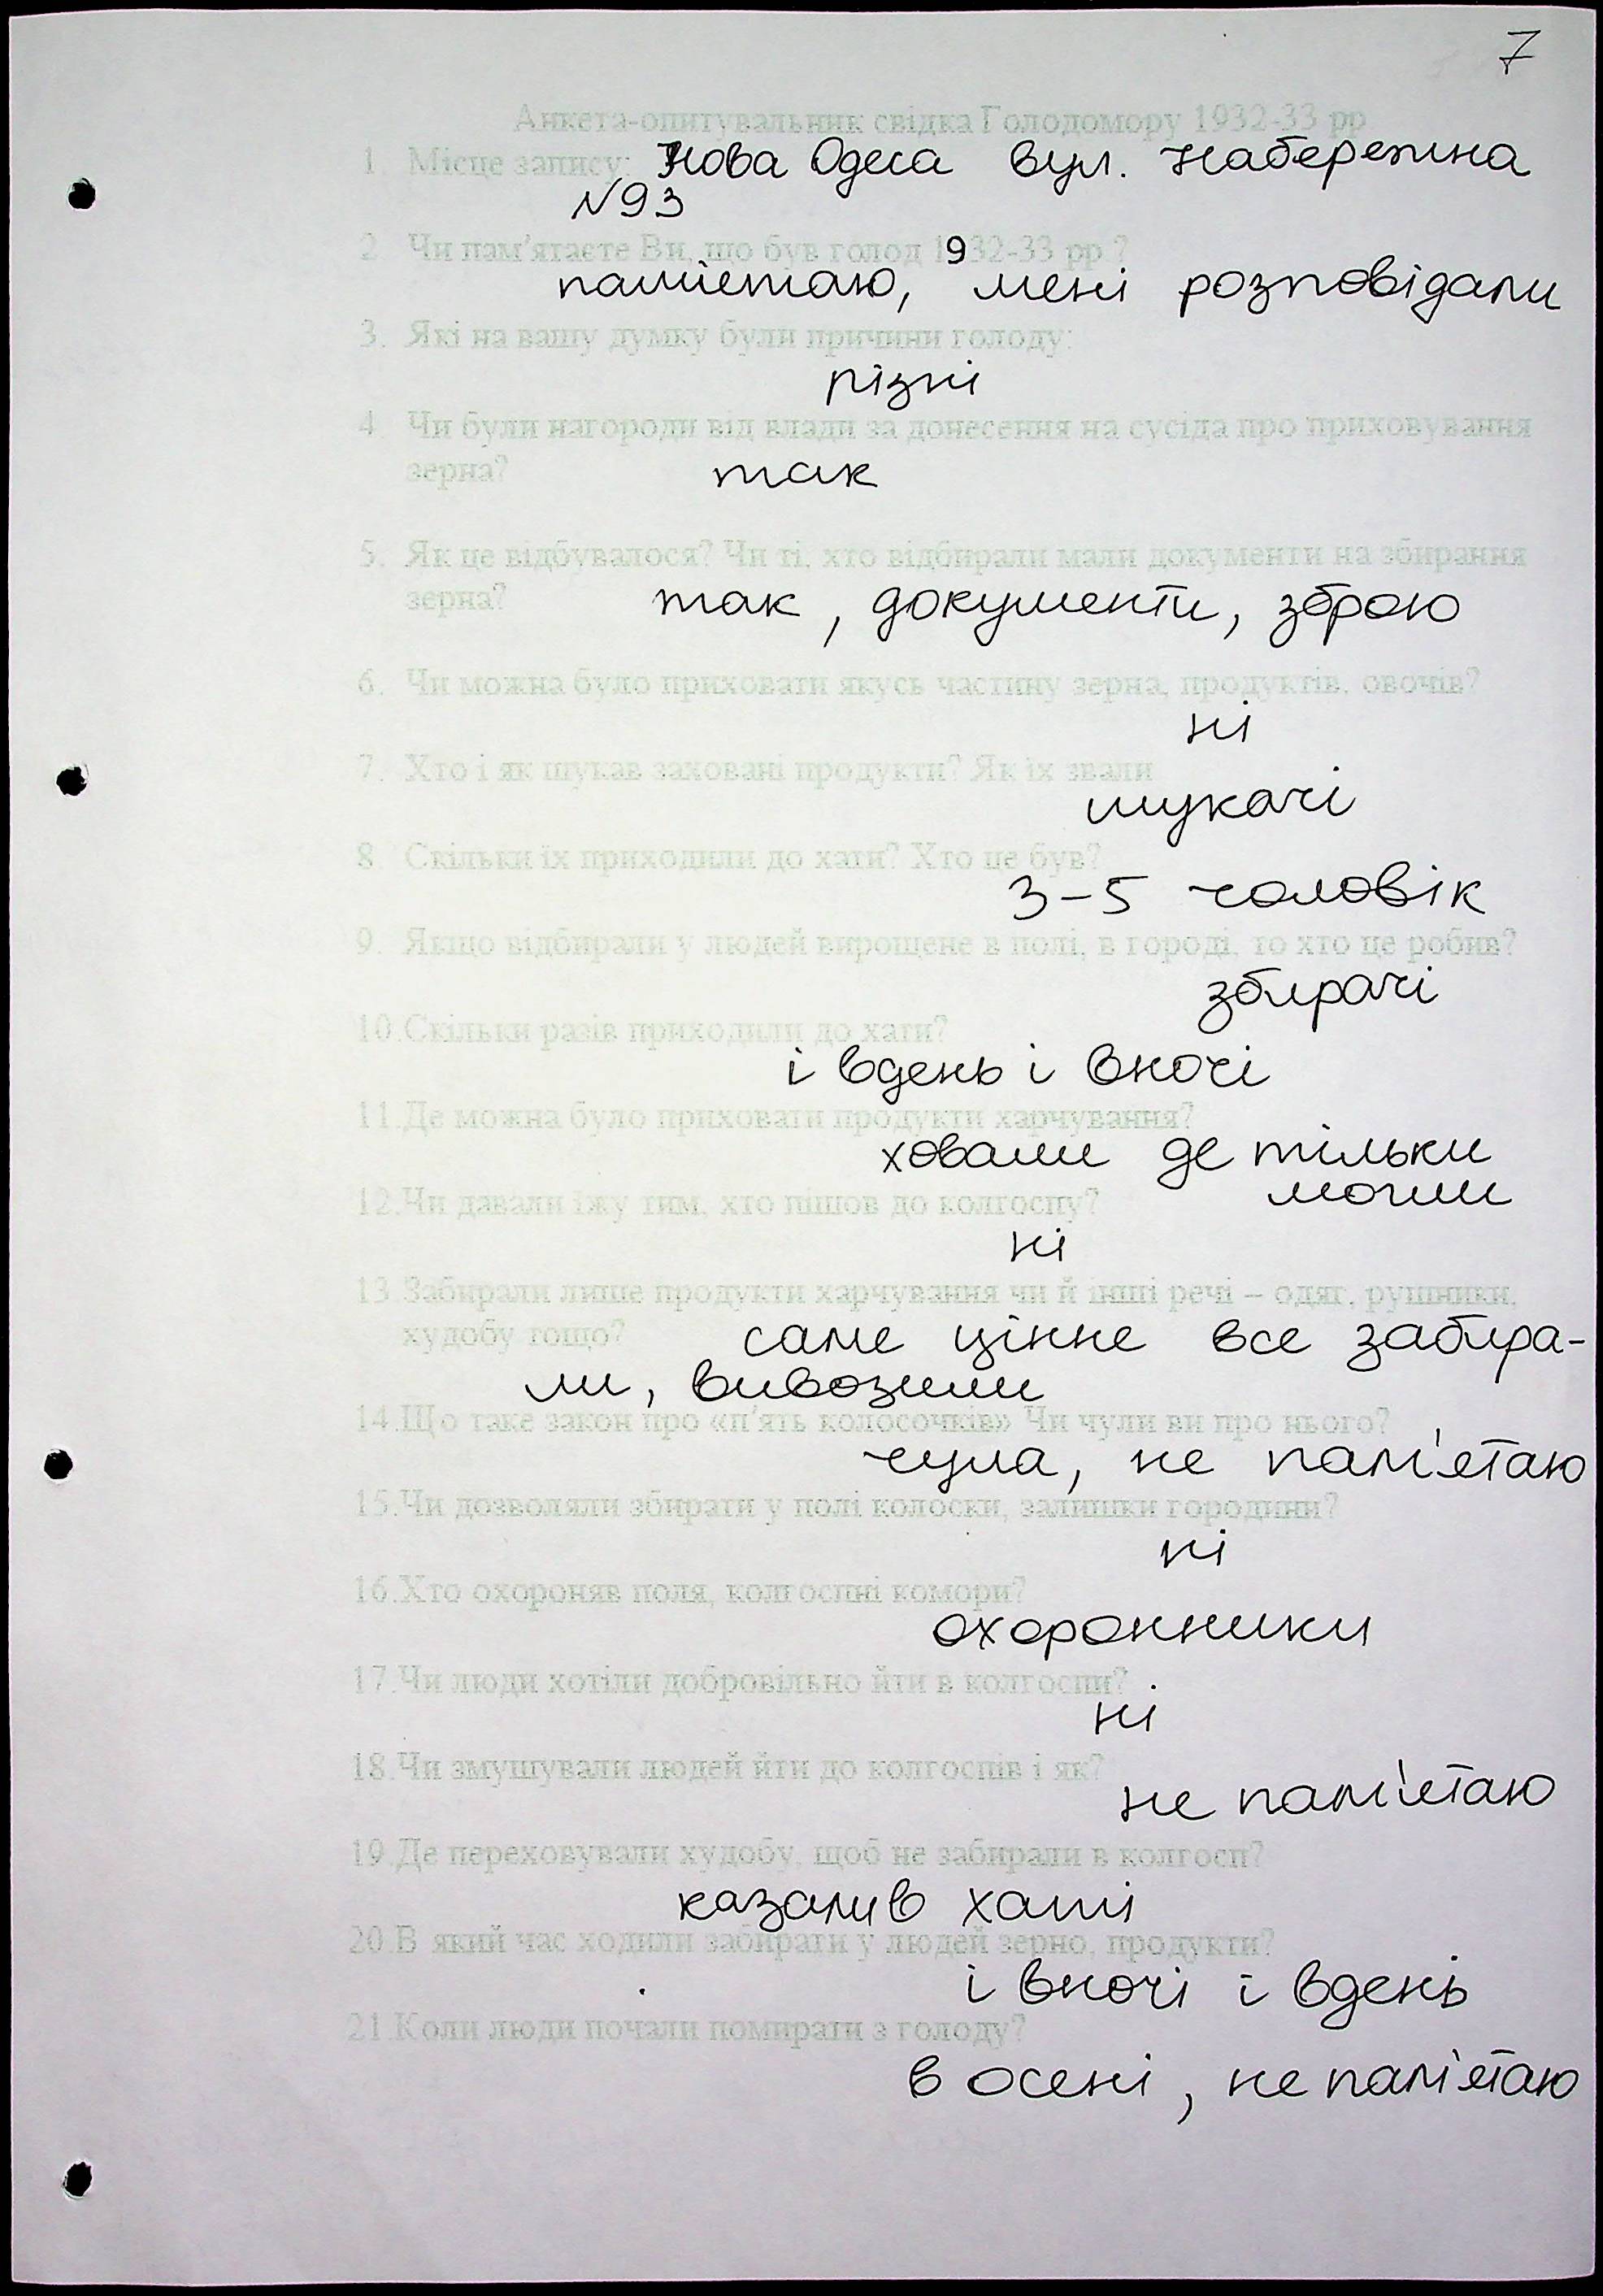 7
Анкета-опитувальник свідка Голодомору 1932-33 рр
1. Місце запису: Нова Одеса вул. Набережна
№93
2. Чи пам'ятаєте Ви, що був голод 1932-33 рр.?
памʼятаю, мені розповідали
3. Які на вашу думку були причини голоду:
різні
4. Чи були нагороди від влади за донесення на сусіда про приховування
зерна? так
5. Як це відбувалося? Чи ті, хто відбирали мали документи на збирання
зерна? так, документи, зброю
6. Чи можна було приховати якусь частину зерна, продуктів, овочів?
ні
7. Хто і як шукав заховані продукти? Як їх звали
шукачі
8. Скільки їх приходили до хати? Хто це був?
3-5 чоловік
9. Якщо відбирали у людей вирощене в полі, в городі, то хто це робив?
збирачі
10.Скільки разів приходили до хати?
і вдень і вночі
11.Де можна було приховати продукти харчування?
ховали де тільки
могли
12.Чи давали їжу тим, хто пішов до колгоспу?
ні
13.Забирали лише продукти харчування чи й інші речі – одяг, рушники,
худобу тощо? саме цінне все забира-
ли, вивозили
14.Що таке закон про «п'ять колосочків» Чи чули ви про нього?
чула, не пам'ятаю
15.Чи дозволяли збирати у полі колоски, залишки городини?
ні
16.Хто охороняв поля, колгоспні комори?
охоронники
17.Чи люди хотіли добровільно йти в колгоспи?
ні
18.Чи змушували людей йти до колгоспів і як?
не пам'ятаю
19.Де переховували худобу, щоб не забирали в колгосп?
казали в хаті
20.В який час ходили забирати у людей зерно, продукти?
і вночі і вдень
21.Коли люди почали помирати з голоду?
в осені, не пам'ятаю